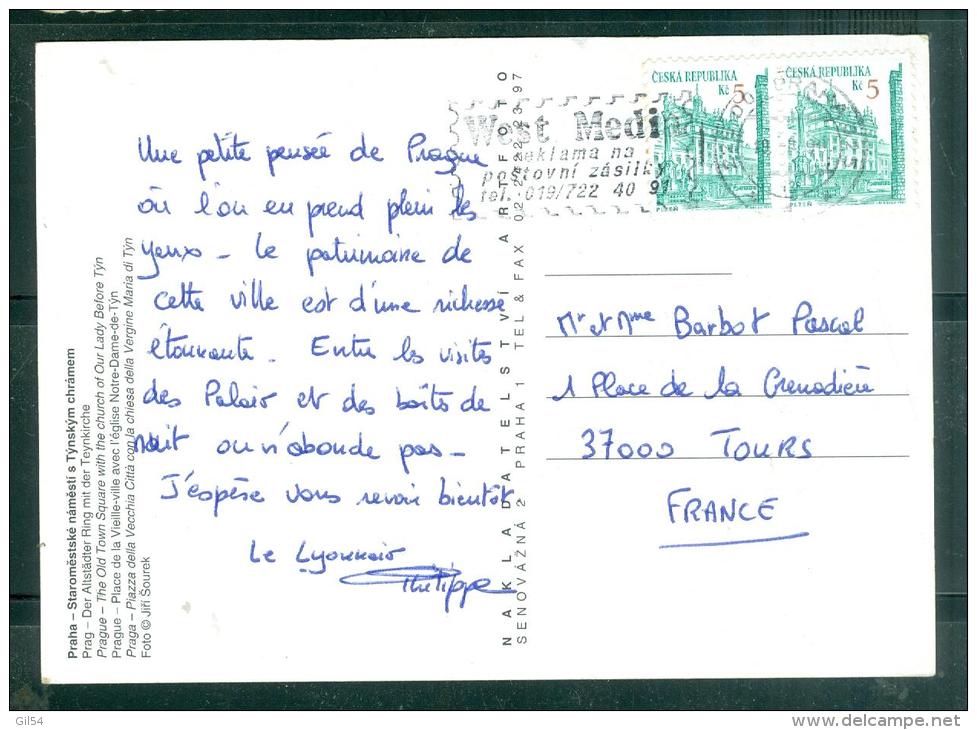 Une petite pensée de Prague
où l'on en prend plein les
yeux – le patrimoine de
cette ville est d'une richesse
étonnante. Entre les visites
des Palais et des boîtes de
nuit on n'abonde pas –
J'espère vous revoir bientôt
Le Lyonnais
Philippe
Praha – Staroměstské náměstí s Týnským chrámem
Prag – Der Altstädter Ring mit der Teynkirche
Prague – The Old Town Square with the church of Our Lady Before Týn
Prague – Place de la Vieille-ville avec l'église Notre-Dame-de-Týn
Praga – Piazza della Vecchia Città con la chiesa della Vergine Maria di Týn
Foto © Jiří Šourek
NAKLADATELSTVÍ ARTFOTO
SENOVÁŽNÁ 2 PRAHA 1 TEL & FAX 02-2422 23 97
West Media
reklama na
poštovní zásilky
tel. 019/722 40 91
ČESKÁ REPUBLIKA
Kč 5
PLZEŇ
ČESKÁ REPUBLIKA
Kč 5
PLZEŇ
Mr et Mme Barbot Pascal
1 Place de la Grenadière
37000 TOURS
FRANCE
Gil54
www.delcampe.net